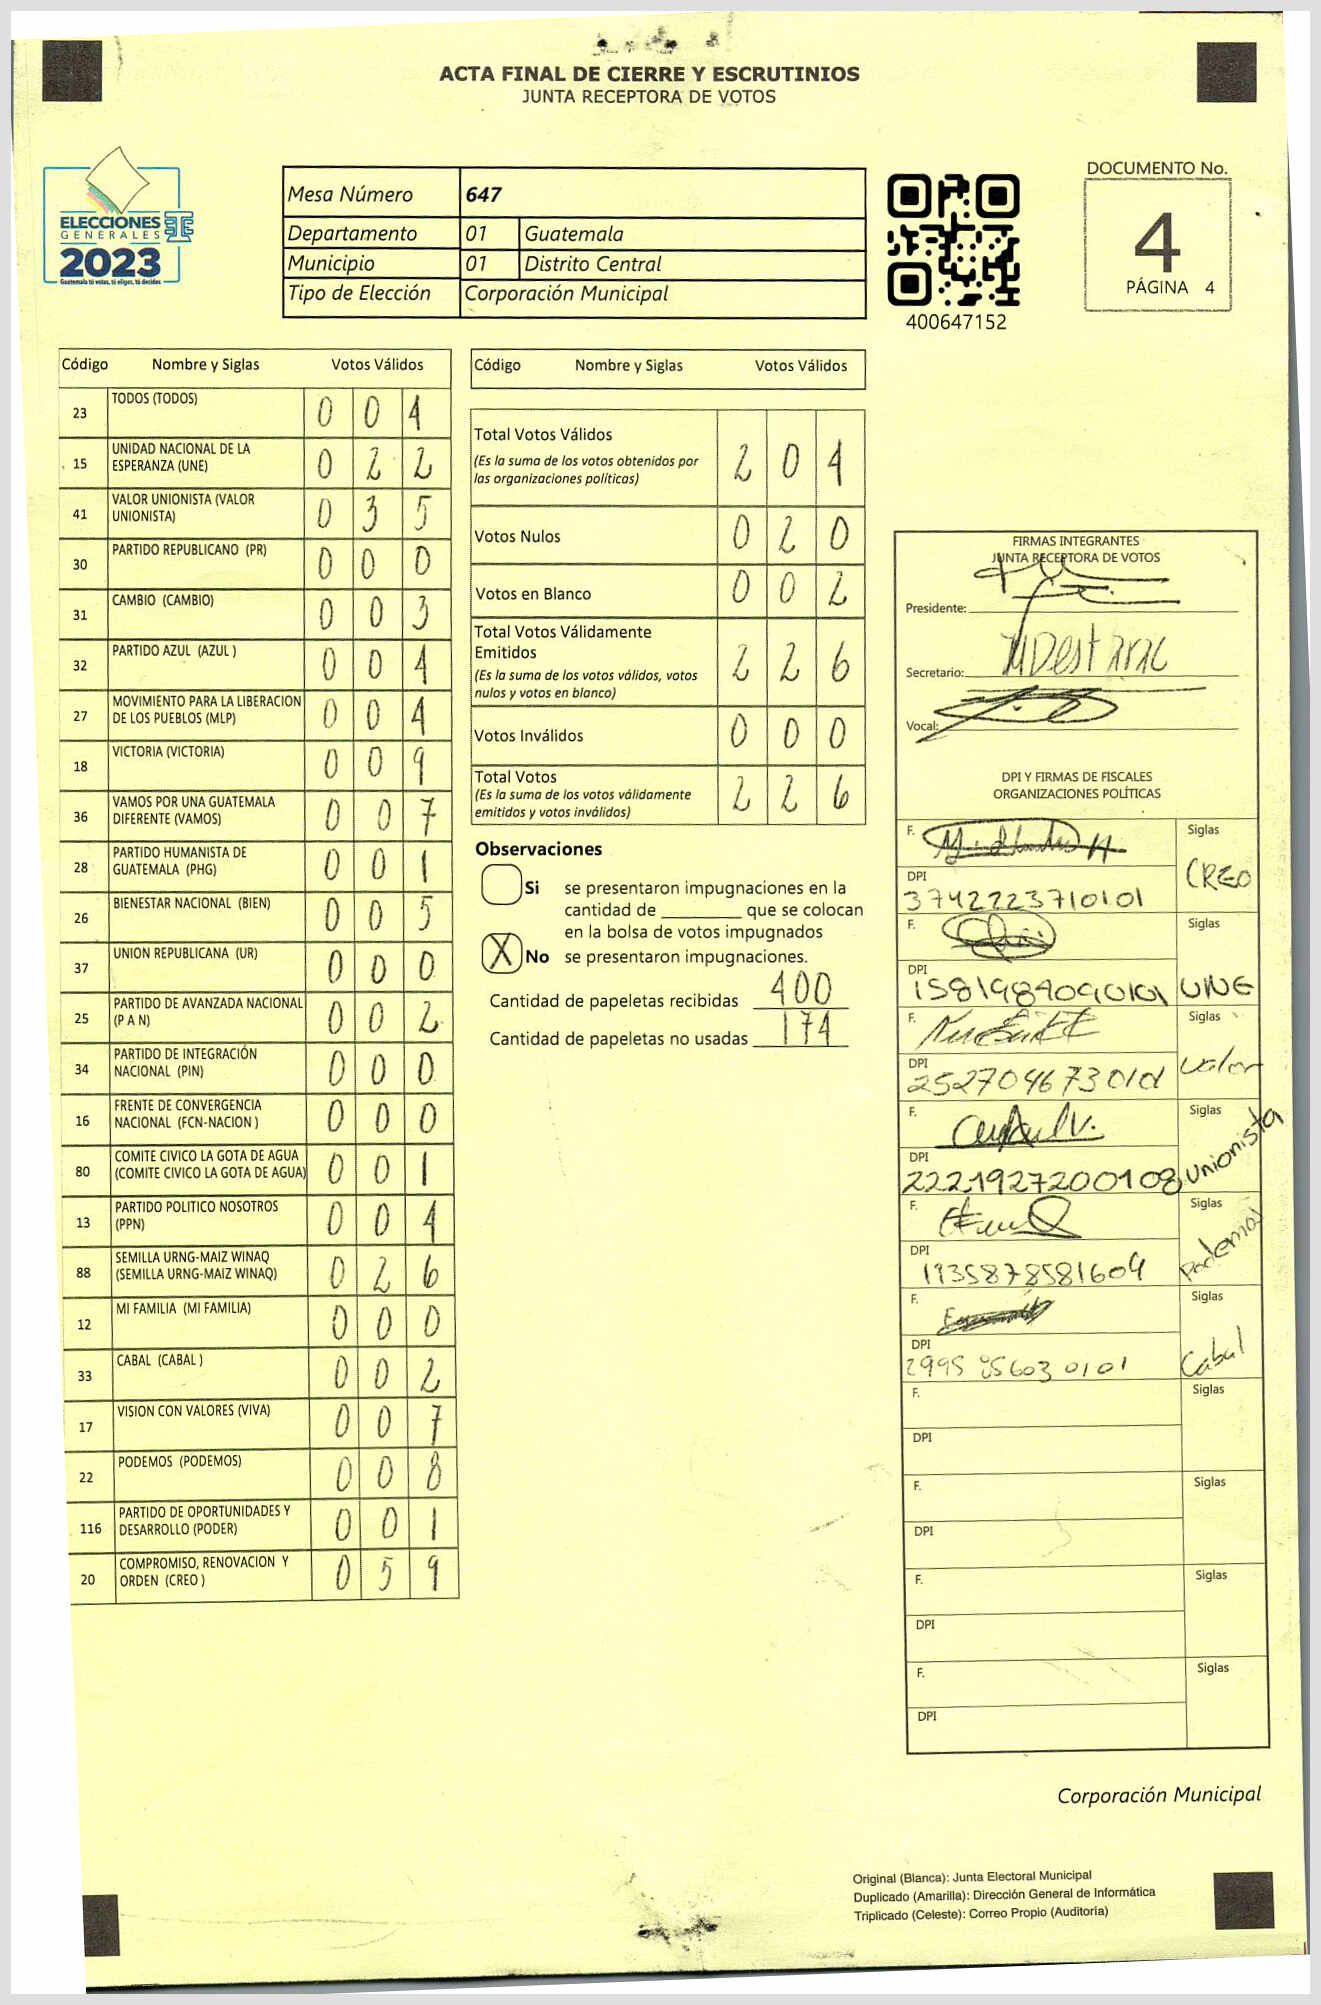 ACTA FINAL DE CIERRE Y ESCRUTINIOS
JUNTA RECEPTORA DE VOTOS
ELECCIONES
GENERALES
2023
Guatemala tú votas, tú eliges, tú decides
Mesa Número 647
Departamento 01 Guatemala
Municipio 01 Distrito Central
Tipo de Elección Corporación Municipal
400647152
DOCUMENTO No.
4
PÁGINA 4
Código Nombre y Siglas Votos Válidos
23 TODOS (TODOS) 0 0 4
15 UNIDAD NACIONAL DE LA ESPERANZA (UNE) 0 2 2
41 VALOR UNIONISTA (VALOR UNIONISTA) 0 3 5
30 PARTIDO REPUBLICANO (PR) 0 0 0
31 CAMBIO (CAMBIO) 0 0 3
32 PARTIDO AZUL (AZUL ) 0 0 4
27 MOVIMIENTO PARA LA LIBERACION DE LOS PUEBLOS (MLP) 0 0 4
18 VICTORIA (VICTORIA) 0 0 9
36 VAMOS POR UNA GUATEMALA DIFERENTE (VAMOS) 0 0 7
28 PARTIDO HUMANISTA DE GUATEMALA (PHG) 0 0 1
26 BIENESTAR NACIONAL (BIEN) 0 0 5
37 UNION REPUBLICANA (UR) 0 0 0
25 PARTIDO DE AVANZADA NACIONAL (P A N) 0 0 2
34 PARTIDO DE INTEGRACIÓN NACIONAL (PIN) 0 0 0
16 FRENTE DE CONVERGENCIA NACIONAL (FCN-NACION ) 0 0 0
80 COMITE CIVICO LA GOTA DE AGUA (COMITE CIVICO LA GOTA DE AGUA) 0 0 1
13 PARTIDO POLITICO NOSOTROS (PPN) 0 0 4
88 SEMILLA URNG-MAIZ WINAQ (SEMILLA URNG-MAIZ WINAQ) 0 2 6
12 MI FAMILIA (MI FAMILIA) 0 0 0
33 CABAL (CABAL ) 0 0 2
17 VISION CON VALORES (VIVA) 0 0 7
22 PODEMOS (PODEMOS) 0 0 8
116 PARTIDO DE OPORTUNIDADES Y DESARROLLO (PODER) 0 0 1
20 COMPROMISO, RENOVACION Y ORDEN (CREO ) 0 5 9
Código Nombre y Siglas Votos Válidos
Total Votos Válidos 2 0 4
(Es la suma de los votos obtenidos por
las organizaciones políticas)
Votos Nulos 0 2 0
Votos en Blanco 0 0 2
Total Votos Válidamente
Emitidos 2 2 6
(Es la suma de los votos válidos, votos
nulos y votos en blanco)
Votos Inválidos 0 0 0
Total Votos 2 2 6
(Es la suma de los votos válidamente
emitidos y votos inválidos)
Observaciones
Si se presentaron impugnaciones en la
cantidad de ________ que se colocan
en la bolsa de votos impugnados
X No se presentaron impugnaciones.
Cantidad de papeletas recibidas 400
Cantidad de papeletas no usadas 174
FIRMAS INTEGRANTES
JUNTA RECEPTORA DE VOTOS
Presidente:
Secretario:
Vocal:
DPI Y FIRMAS DE FISCALES
ORGANIZACIONES POLÍTICAS
F. Siglas
CREO
DPI
3742223710101
F. Siglas
DPI
UNE
F. Siglas
DPI
Valor
2527046730101
F. Siglas
DPI
Unionista
2221927200108
F. Siglas
DPI
Podemos
1935878581609
F. Siglas
DPI
Cabal
F. Siglas
DPI
F. Siglas
DPI
F. Siglas
DPI
F. Siglas
DPI
Corporación Municipal
Original (Blanca): Junta Electoral Municipal
Duplicado (Amarilla): Dirección General de Informática
Triplicado (Celeste): Correo Propio (Auditoría)